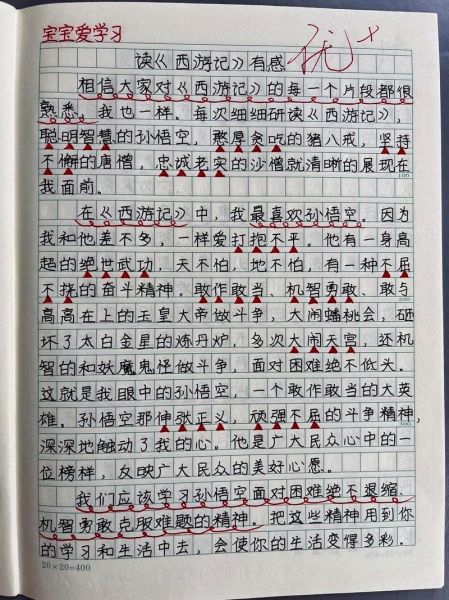 宝宝爱学习
读《西游记》有感
优+
相信大家对《西游记》的每一个片段都很
熟悉,我也一样。每次细细研读《西游记》,
聪明智慧的孙悟空,憨厚贪吃的猪八戒,坚持
不懈的唐僧,忠诚老实的沙僧就清晰的展现在
我面前。
100
在《西游记》中,我最喜欢孙悟空。因为
我和他差不多,一样爱打抱不平。他有一身高
超的绝世武功,天不怕,地不怕,有一种不屈
不挠的奋斗精神。敢作敢当、机智勇敢、敢与
200
高高在上的玉皇大帝做斗争,大闹蟠桃会,砸
坏了太白金星的炼丹炉,多次大闹天宫,还机
智的和妖魔鬼怪做斗争,面对困难绝不低头。
这就是我眼中的孙悟空,一个敢作敢当的大英
雄。孙悟空那伸张正义,顽强不屈的斗争精神,
300
深深地触动了我的心。他是广大民众心中的一
位榜样,反映广大民众的美好心愿。
我们应该学习孙悟空面对困难绝不退缩,
机智勇敢克服难题的精神。把这些精神用到你
的学习和生活中去,会使你的生活变得多彩。
20×20=400